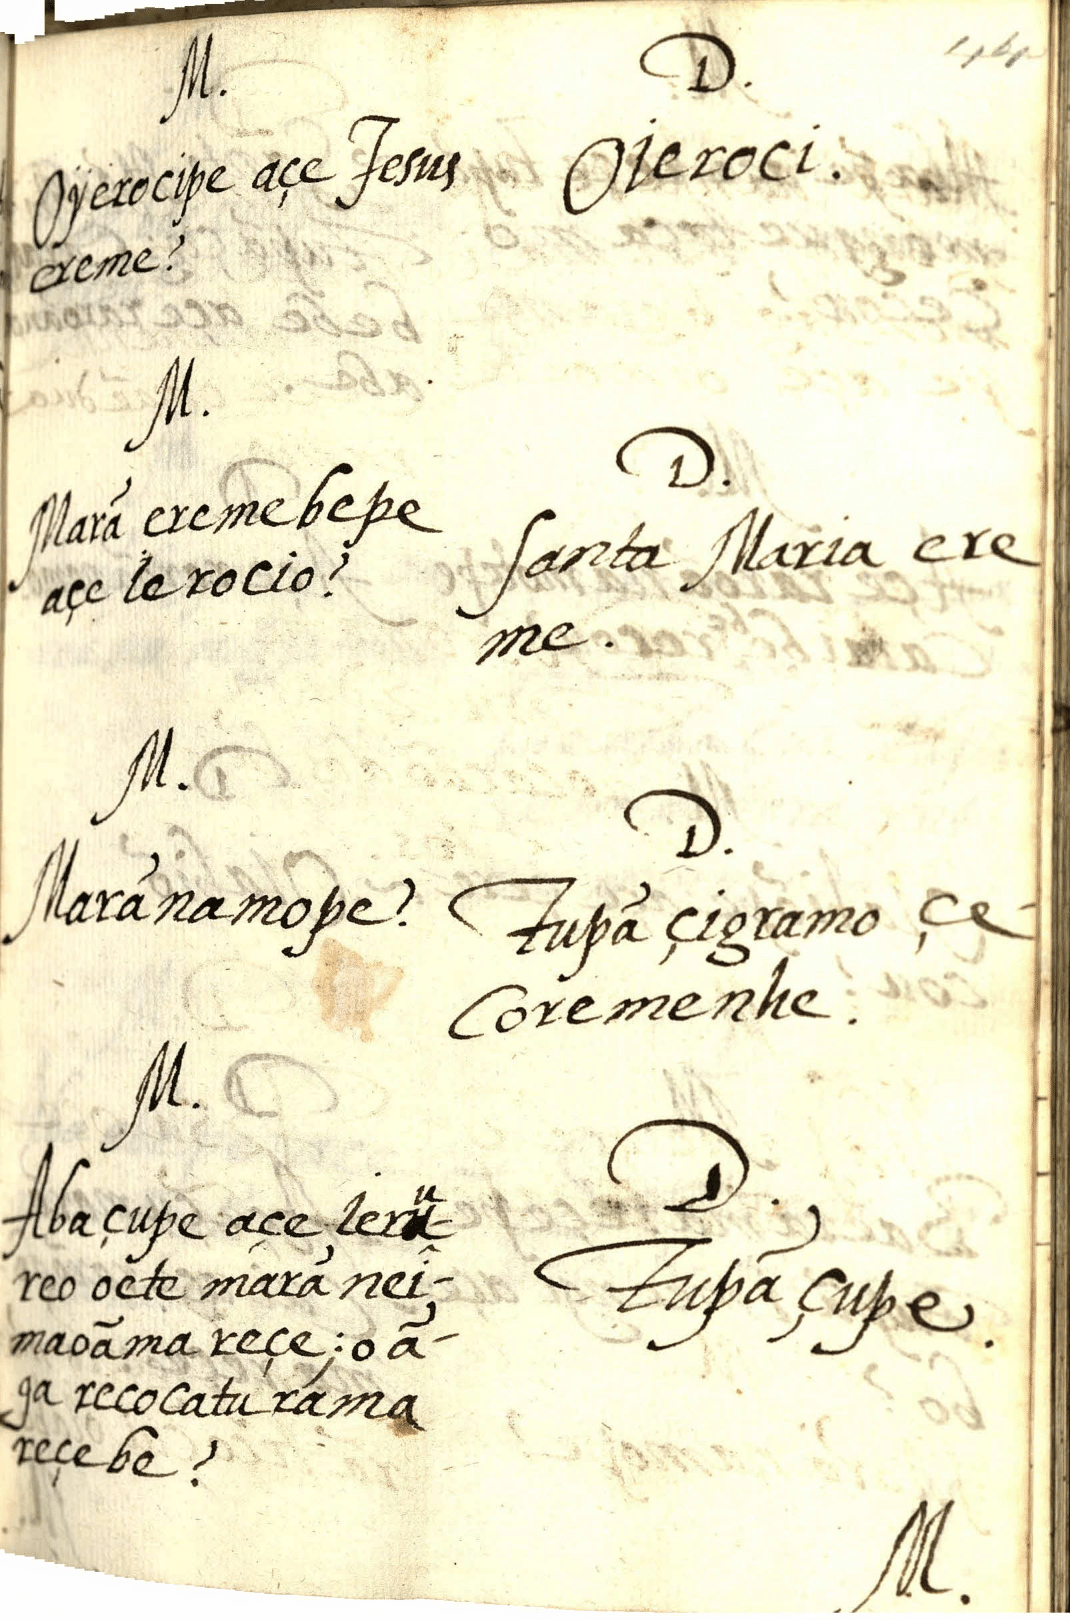 M.
Oÿerocipe açe Jesus
ereme?
D.
Oieroci.
M.
Marã eremebepe
açe ierocio?
D.
Santa Maria ere
me.
M.
Marãnamope?
D.
Tupã çigramo çe-
coremenhe.
M.
Aba çupe açe ierũ-
reo oete marã neî-
maoãma reçe; o ã-
ga recocatu rama
reçebe?
D.
Tupã çupe.
M.